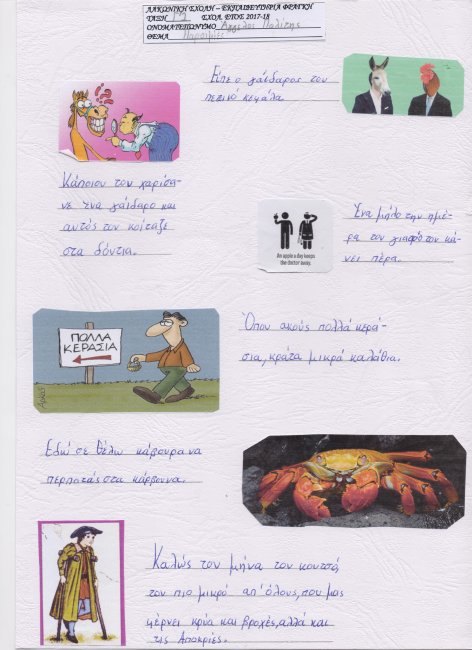 ΛΑΚΩΝΙΚΗ ΣΧΟΛΗ – ΕΚΠΑΙΔΕΥΤΗΡΙΑ ΦΡΑΓΚΗ
ΤΑΞΗ Γ2 ΣΧΟΛ. ΕΤΟΣ 2017-18
ΟΝΟΜΑΤΕΠΩΝΥΜΟ Άγγελος Πολίτης
ΘΕΜΑ Παροιμίες
Είπε ο γάιδαρος τον
πετινό κεφάλα.
Κάποιου του χαρίσα-
νε ένα γάιδαρο και
αυτός τον κοίταξε
στα δόντια.
An apple a day keeps
the doctor away.
Ένα μήλο την ημέ-
ρα τον γιατρό τον κά-
νει πέρα.
ΠΟΛΛΑ
ΚΕΡΑΣΙΑ
Όπου ακούς πολλά κερά-
σια, κράτα μικρά καλάθια.
Εδώ σε θέλω κάβουρα να
περπατάς στα κάρβουνα.
Καλώς τον μήνα τον κουτσό,
τον πιο μικρό απ' όλους, που μας
φέρνει κρύα και βροχές, αλλά και
τις Αποκριές.